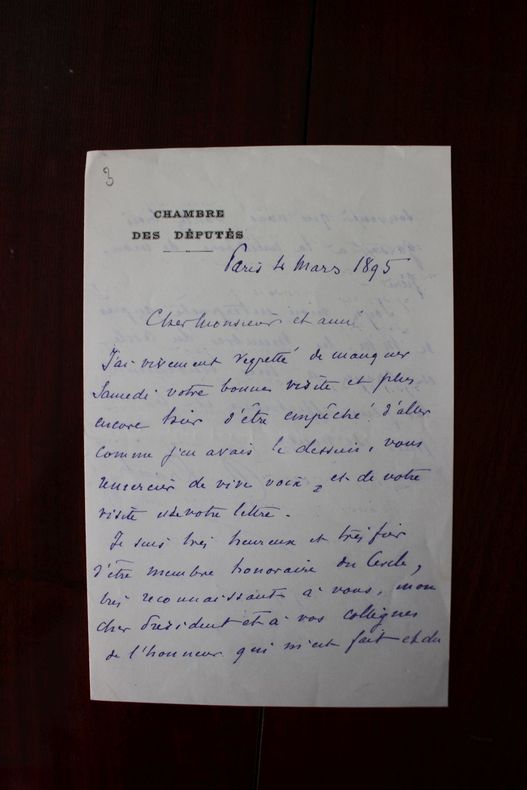 3
CHAMBRE
DES DÉPUTÉS
Paris 4 Mars 1895
Cher Monsieur et ami
J'ai vivement regretté de manquer
Samedi votre bonne visite et plus
encore hier d'être empêché d'aller
comme j'en avais le dessein, vous
remercier de vive voix, et de votre
visite et de votre lettre.
Je suis très heureux et très fier
d'être membre honoraire du Cercle,
très reconnaissant à vous, mon
cher Président et à vos collègues
de l'honneur qui m'est fait et du